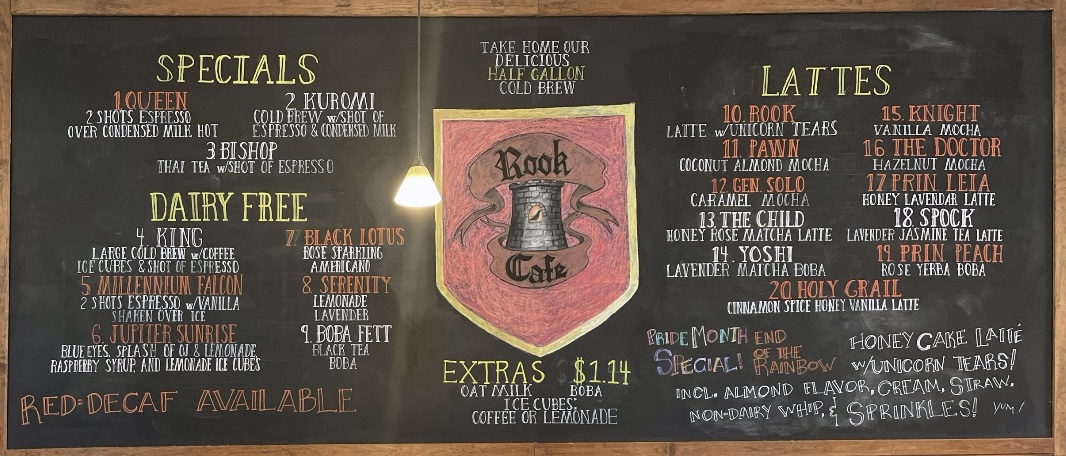 SPECIALS
1. QUEEN
2 SHOTS ESPRESSO
OVER CONDENSED MILK HOT
2. KUROMI
COLD BREW w/SHOT OF
ESPRESSO & CONDENSED MILK
3 BISHOP
THAI TEA w/SHOT OF ESPRESSO
DAIRY FREE
4. KING
LARGE COLD BREW w/COFFEE
ICE CUBES & SHOT OF ESPRESSO
5. MILLENNIUM FALCON
2 SHOTS ESPRESSO w/VANILLA
SHAKEN OVER ICE
6. JUPITER SUNRISE
BLUE EYES, SPLASH OF OJ & LEMONADE
RASPBERRY SYRUP, AND LEMONADE ICE CUBES
7. BLACK LOTUS
ROSE SPARKLING
AMERICANO
8. SERENITY
LEMONADE
LAVENDER
9. BOBA FETT
BLACK TEA
BOBA
RED=DECAF AVAILABLE
TAKE HOME OUR
DELICIOUS
HALF GALLON
COLD BREW
Rook
Cafe
EXTRAS $1.14
OAT MILK BOBA
ICE CUBES:
COFFEE OR LEMONADE
LATTES
10. ROOK
LATTE w/UNICORN TEARS
11. PAWN
COCONUT ALMOND MOCHA
12. GEN. SOLO
CARAMEL MOCHA
13. THE CHILD
HONEY ROSE MATCHA LATTE
14. YOSHI
LAVENDER MATCHA BOBA
15. KNIGHT
VANILLA MOCHA
16. THE DOCTOR
HAZELNUT MOCHA
17 PRIN. LEIA
HONEY LAVENDAR LATTE
18. SPOCK
LAVENDER JASMINE TEA LATTE
19. PRIN. PEACH
ROSE YERBA BOBA
20. HOLY GRAIL
CINNAMON SPICE HONEY VANILLA LATTE
PRIDE MONTH
SPECIAL!
END
OF THE
RAINBOW
HONEY CAKE LATTE
w/UNICORN TEARS!
INCL. ALMOND FLAVOR, CREAM, STRAW.
NON-DAIRY WHIP, & SPRINKLES! YUM!